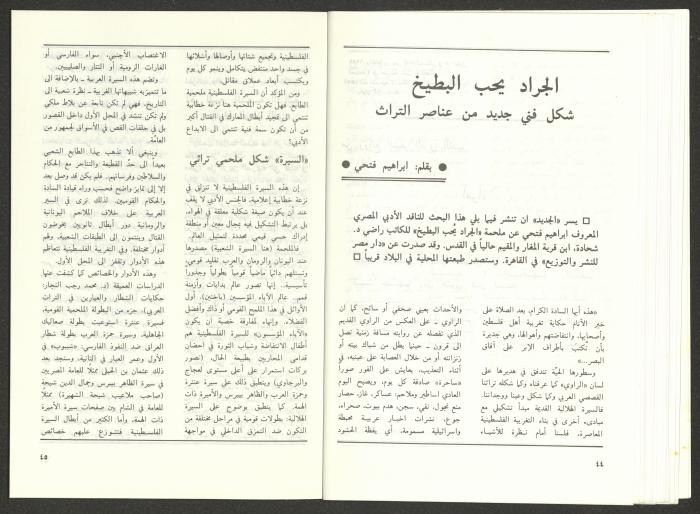 الجراد يحب البطيخ
شكل فني جديد من عناصر التراث
● بقلم: ابراهيم فتحي ●
□ يسر «الجديد» ان تنشر فيما يلي هذا البحث للناقد الأدبي المصري
المعروف ابراهيم فتحي عن ملحمة «الجراد يُحب البطيخ» للكاتب راضي د.
شحادة، ابن قرية المغار والمقيم حالياً في القدس. وقد صدرت عن «دار مصر
للنشر والتوزيع» في القاهرة. وستصدر طبعتها المحلية في البلاد قريباً □
«هذه أيها السادة الكرام، بعد الصلاة على
خير الأنام حكاية تغريبة أهل فلسطين
وأصحابها، وانتفاضتهم وأهوالها، وهي جديرة
بأن تُكتب بأطراف الإبر على آفاق
البصر...»
وسطورها الحيّة تتدفق في هديرها على
لسان «الراوي» كما عرفناه وكما شكله تراثنا
القصصي العربي وكما شكل وعينا ووجداننا.
فالسيرة الهلالية القديمة مبدأ تشكيلي مع
مبادىء أخرى في بناء التغريبة الفلسطينية
المعاصرة. فلسنا أمام نظرة للأشياء
والأحداث بعيني صحفي أو سائح، كما أن
الراوي ـ على العكس من الراوي القديم
الذي تفصله عن رواية مسافة زمنية تصل
الى قرون ـ حينما يطل من شباك بيته أو
زنزانته أو من خلال العصابة على عينيه، في
أثناء التعذيب، يعايش على الفور صوراً
«ساخرة» صادقة كل يوم، ويصبح اليوم
العادي أساطير وملاحم: عساكر، غاز، حصار
منع تجول، نفي، سجن، هدم بيوت، صحراء،
جوع، نشرات أخبار عربية محبطة
واسرائيلية مسمومة. أي يقظة الحشود
٤٤
الفلسطينية وتجميع شتاتها وأوصالها وأشلائها
في جسد واحد منتفض يتكامل وينمو كل يوم
ويكتسب أبعاد عملاق مقاتل.
ومن المؤكد أن السيرة الفلسطينية ملحمية
الطابع. فهل تكون الملحمية هنا نزعة خطابية
تنتمي الى تمجيد أبطال المعارك في القتال أكثر
من أن تكون سمة فنية تنتمي الى الابداع
الأدبي؟
«السيرة» شكل ملحمي تراثي
إن هذه السيرة الفلسطينية لا تنزلق في
نزعة خطابية إعلامية. فالجنس الأدبي لا يقف
عند أن يكون صيغة شكلية معلقة في الهواء،
بل يرتبط التشكيل فيه بمجال معين أو منطقة
إدراك حسي قيمي محددة لتمثيل العالم.
فالملحمة (هنا السيرة الشعبية) مصدرها
عند اليونان والرومان والعرب تقليد قومي،
وتستلهم دائماً ماضياً قومياً بطولياً وجذوراً
تأسيسية. إنها تصور عالم بدايات وأزمنة
قمم.. عالم الآباء المؤسسين (باختين)، أول
الأوائل في هذا الملمح القومي أو ذاك وأفضل
الفضلاء. وإنها لمفارقة خصبة أن يكون
«الآباء المؤسسون» للسيرة الفلسطينية هم
أطفال الانتفاضة وشباب الثورة في أحضان
قدامى المحاربين بطبيعة الحال، (تصور
بركات استمرار على أعلى مستوى لعجاج
والبرجاوي) وينطبق ذلك على سيرة عنترة
وحمزة العرب والظاهر بيبرس والأميرة ذات
الهمة. كما ينطبق بوضوح على السيرة
الهلالية: بطولات قومية في مراحل مختلفة من
التكون ضد التمزق الداخلي في مواجهة
الاغتصاب الأجنبي، سواء الفارسي أو
الغارات الرومية أو التتار والصليبيين.
وتضم هذه السيرة العربية ـ بالإضافة الى
ما تتميز به شبيهاتها الغربية ـ نظرة شعبية الى
التاريخ. فهي لم تكن تابعة عن بلاط ملكي
ولم تكن تنشد في المحل الأول داخل القصور
بل في حلقات القص في الأسواق لجمهور من
العامة.
وينبغي ألا تذهب بهذا الطابع الشعبي
بعيداً الى حدّ القطيعة والتناحر مع الحكام
والسلاطين وفرسانهم. فلم يكن قد وصل بعد
إلا إلى تمايز واضح فحسب وراء قيادة السادة
والحكام القوميين. لذلك نرى في السير
العربية على خلاف الملاحم اليونانية
والرومانية دور أبطال ثانويين يخوضون
القتال وينتمون الى الطبقات الشعبية. ولهم
أدوار مختلفة. وفي التغريبة الفلسطينية تتعاظم
هذه الأدوار وتقفز الى المحل الأول.
وهذه الأدوار والخصائص كما كشفت عنها
الدراسات العميقة (د. محمد رجب النجار:
حكايات الشطار والعيارين في التراث
العربي)، جزء من البطولة الملحمية القومية.
فسيرة عنترة استوعبت بطولة صعاليك
الجاهلية، وسيرة حمزة العرب بطولة شطار
العراق ضد النفوذ الفارسي: «شيبوب» في
الأول وعمر العيار في الثانية. وسنجد بعد
ذلك عثمان بن الحبلى ممثلاً للعامة المصريين
في سيرة الظاهر بيبرس وجمال الدين شيحة
(صاحب ملاعيب شيحة الشهيرة) ممثلاً
للعامة في الشام بين صفحات سيرة الأميرة
ذات الهمة. وأما الكثير من أبطال السيرة
الفلسطينية فتتوزع عليهم خصائص
٤٥